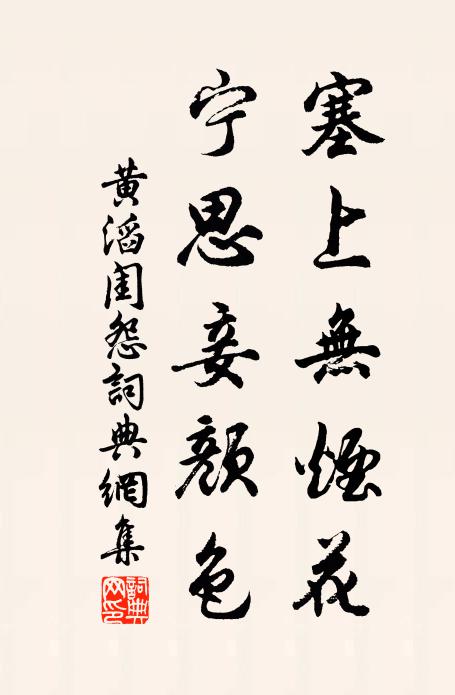 塞上無煙花
宁思妾颜色
黄滔闺怨詞典網集
詞典网印